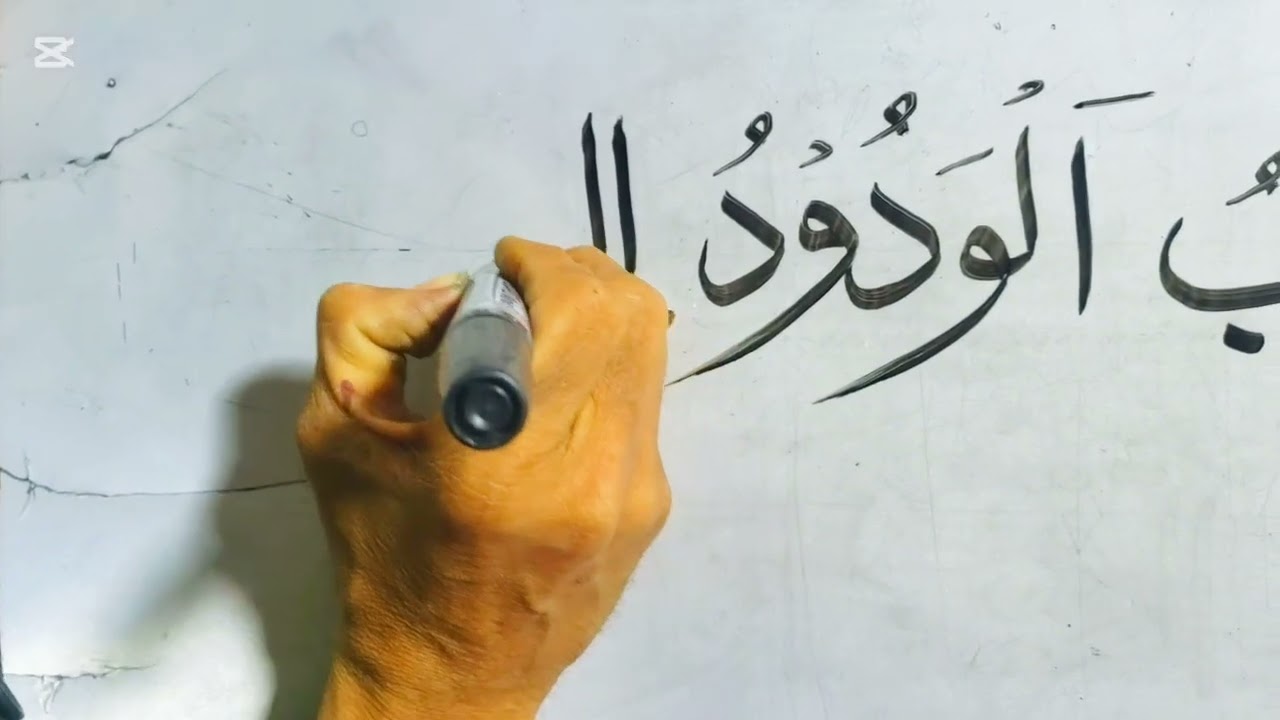 بُ اَلْوَدُوْدُ ال